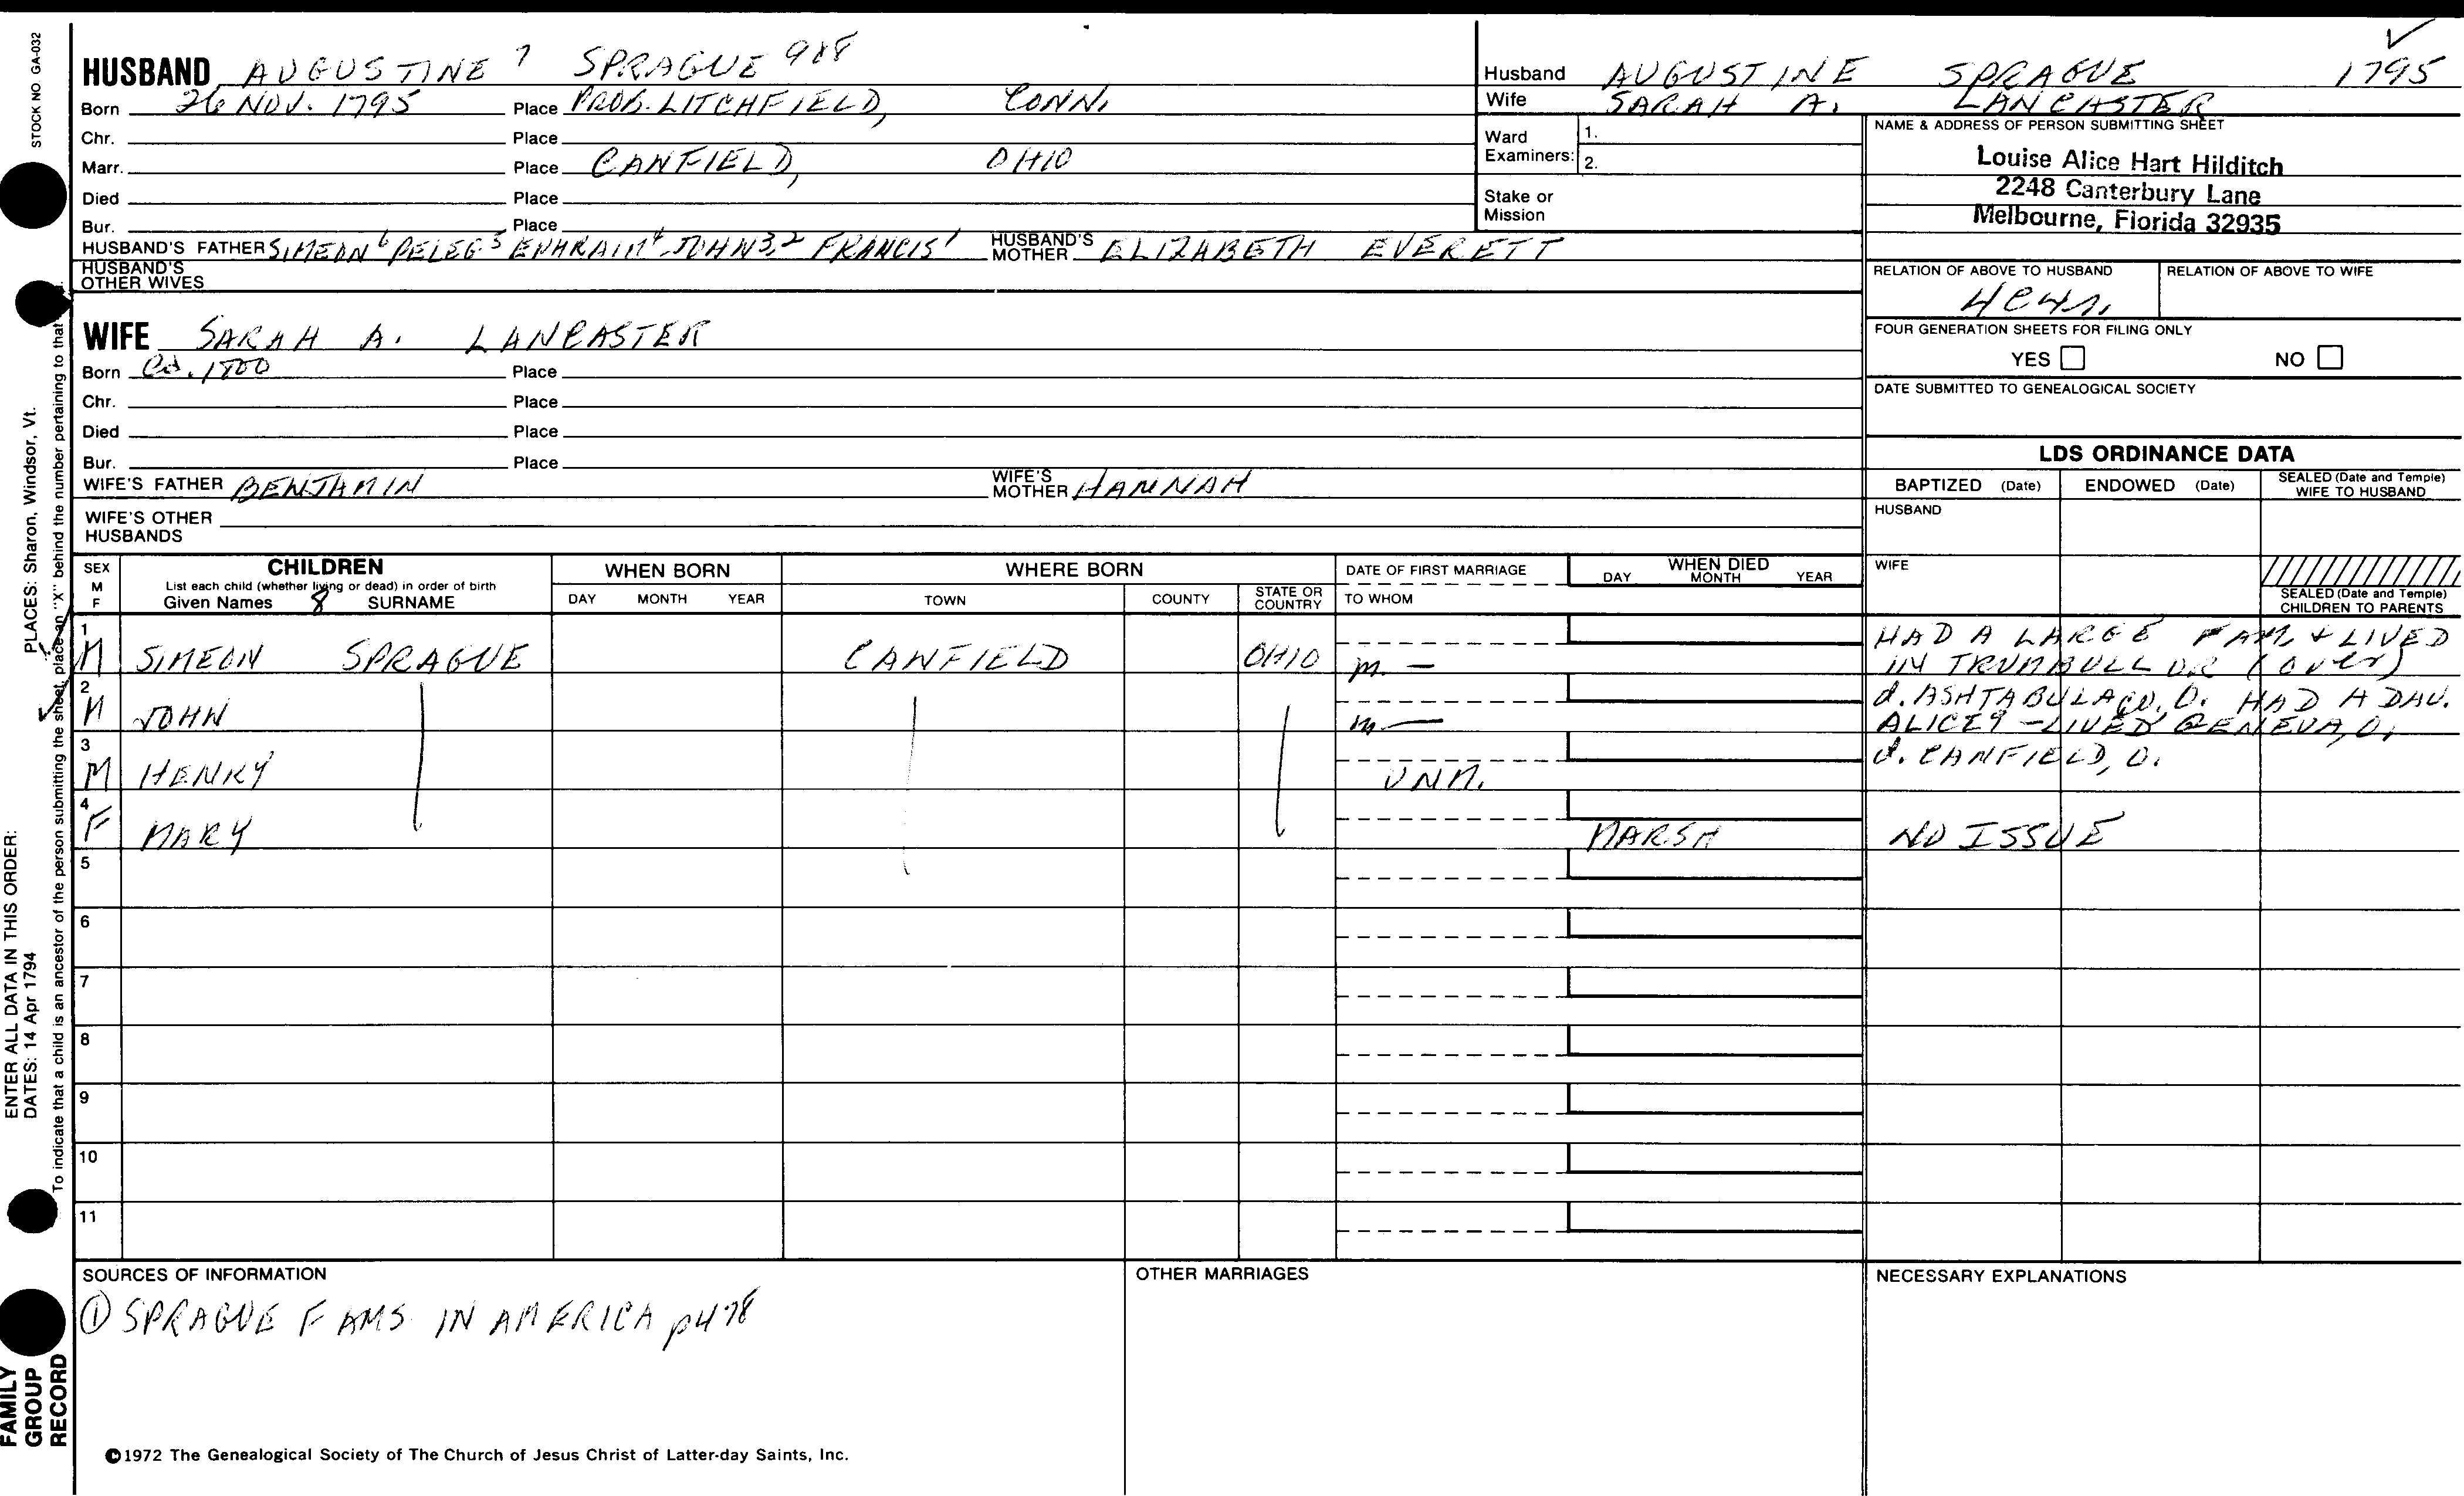 STOCK NO. GA-032
HUSBAND AUGUSTINE 7 SPRAGUE 988
Born 26 NOV. 1795 Place PROB. LITCHFIELD, CONN.
Chr. Place
Marr. Place CANFIELD, OHIO
Died Place
Bur. Place
HUSBAND'S FATHER SIMEON 6 PELEG 5 EPHRAIM 4 JOHN 3,2 FRANCIS 1 HUSBAND'S MOTHER ELIZABETH EVERETT
HUSBAND'S
OTHER WIVES
WIFE SARAH A. LANCASTER
Born Ca. 1800 Place
Chr. Place
Died Place
Bur. Place
WIFE'S FATHER BENJAMIN WIFE'S MOTHER HANNAH
WIFE'S OTHER
HUSBANDS
Husband AUGUSTINE SPRAGUE 1795
Wife SARAH A. LANCASTER
Ward Examiners: 1.
2.
Stake or
Mission
NAME & ADDRESS OF PERSON SUBMITTING SHEET
Louise Alice Hart Hilditch
2248 Canterbury Lane
Melbourne, Florida 32935
RELATION OF ABOVE TO HUSBAND RELATION OF ABOVE TO WIFE
FOUR GENERATION SHEETS FOR FILING ONLY
YES NO
DATE SUBMITTED TO GENEALOGICAL SOCIETY
LDS ORDINANCE DATA
BAPTIZED (Date) ENDOWED (Date) SEALED (Date and Temple)
WIFE TO HUSBAND
HUSBAND
WIFE
SEALED (Date and Temple)
CHILDREN TO PARENTS
SEX M F
CHILDREN
List each child (whether living or dead) in order of birth
Given Names 8 SURNAME
WHEN BORN
DAY MONTH YEAR
WHERE BORN
TOWN COUNTY STATE OR COUNTRY
DATE OF FIRST MARRIAGE
TO WHOM
WHEN DIED
DAY MONTH YEAR
1 M SIMEON SPRAGUE CANFIELD OHIO m. — HAD A LARGE FAM. & LIVED
IN TRUMBULL OR (over)
2 M JOHN m. — d. ASHTABULA CO, O. HAD A DAU.
ALICE 9 - LIVED GENEVA, O.
3 M HENRY UNM. d. CANFIELD, O.
4 F MARY MARSH NO ISSUE
5
6
7
8
9
10
11
SOURCES OF INFORMATION
① SPRAGUE FAMS IN AMERICA p478
OTHER MARRIAGES
NECESSARY EXPLANATIONS
©1972 The Genealogical Society of The Church of Jesus Christ of Latter-day Saints, Inc.
ENTER ALL DATA IN THIS ORDER:
DATES: 14 Apr 1794 PLACES: Sharon, Windsor, Vt.
To indicate that a child is an ancestor of the person submitting the sheet, place an "X" behind the number pertaining to that
FAMILY
GROUP
RECORD